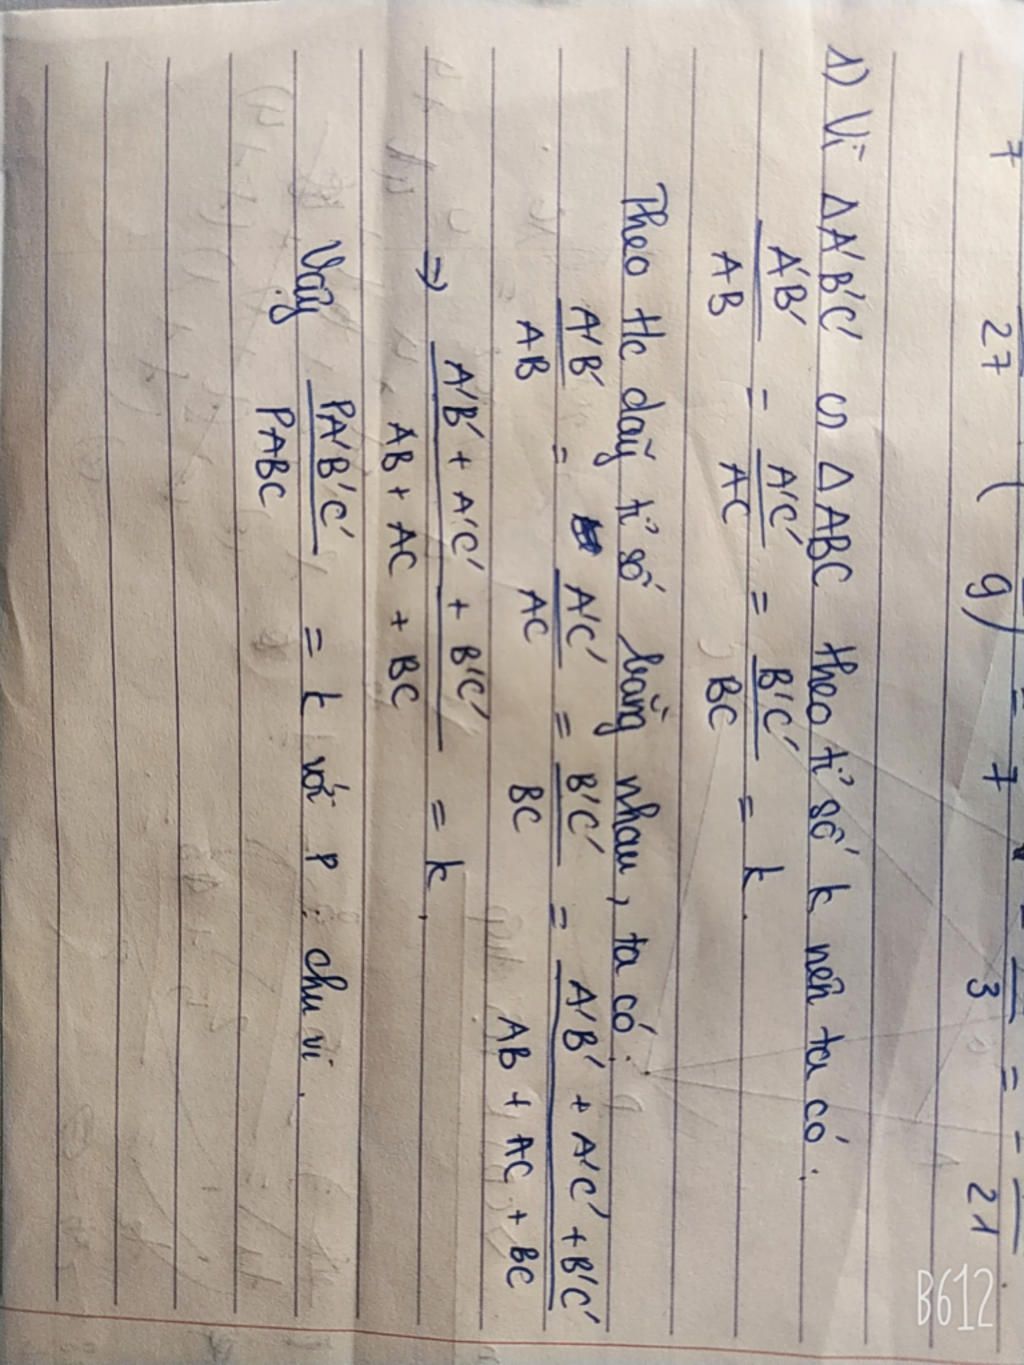 7 27 ( 9) = 7 3 = - 21
1) Vì ΔA'B'C' ᔕ ΔABC theo tỉ số k nên ta có:
A'B' / AB = A'C' / AC = B'C' / BC = k.
Theo t/c dãy tỉ số bằng nhau, ta có:
A'B' / AB = A'C' / AC = B'C' / BC = A'B' + A'C' + B'C' / AB + AC + BC
=> A'B' + A'C' + B'C' / AB + AC + BC = k.
Vậy PA'B'C' / PABC = k với P: chu vi.
B612